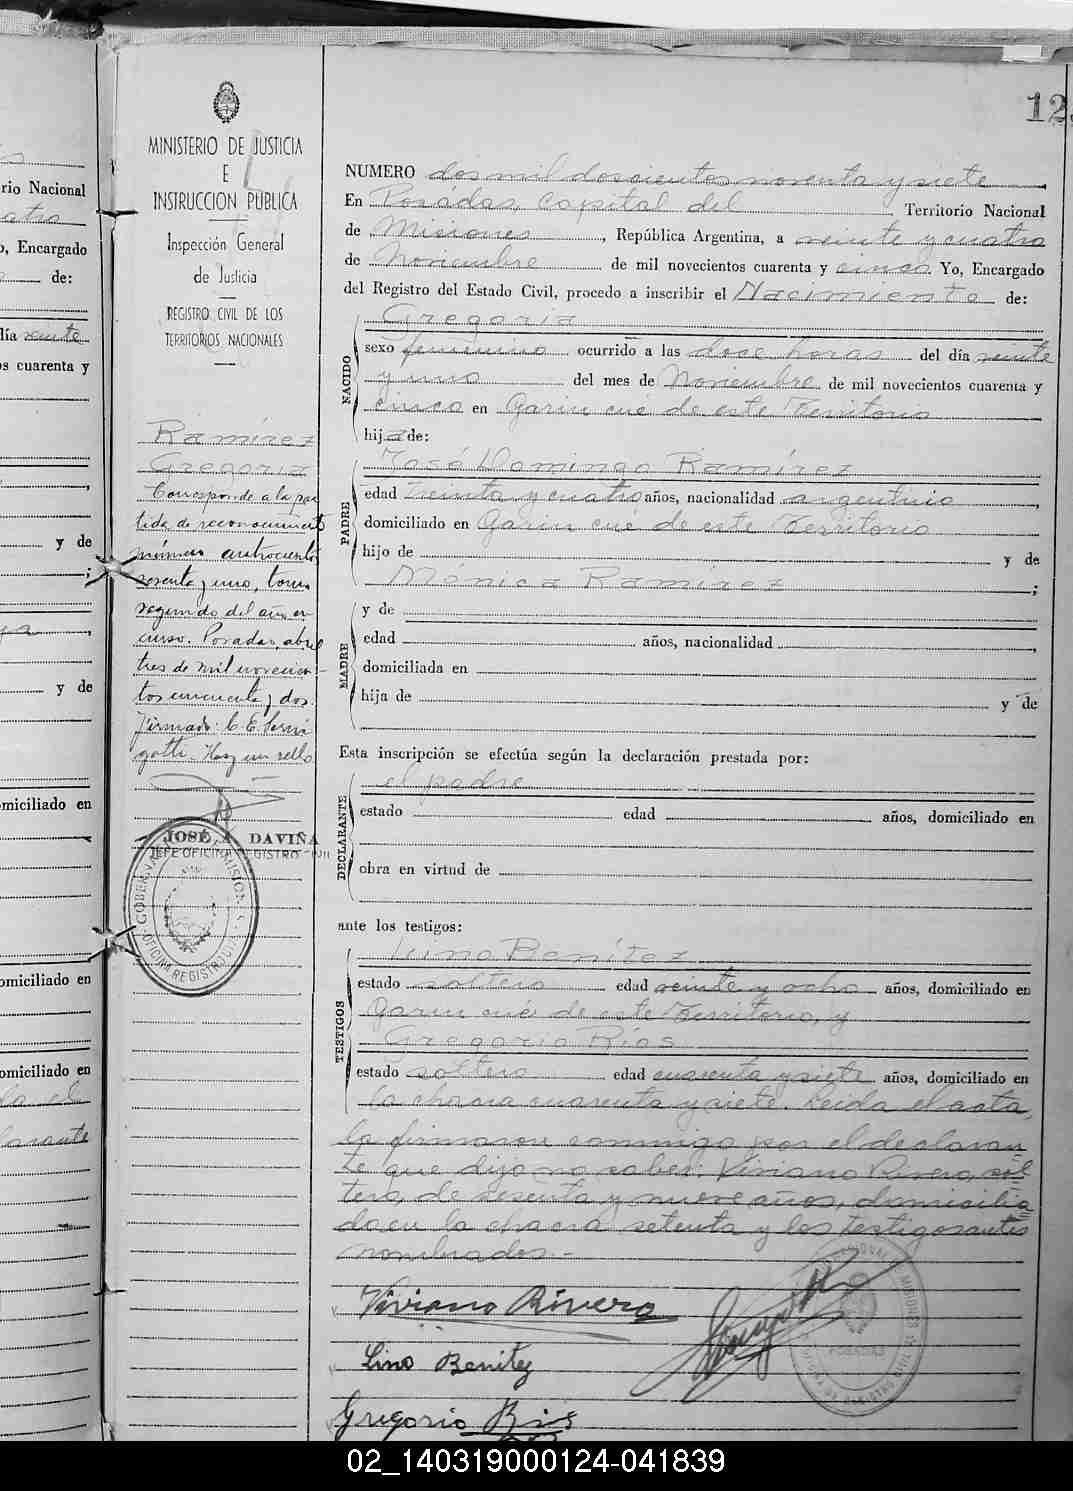 rio Nacional
, Encargado
de:
día veinte
s cuarenta y
y de
y de
omiciliado en
omiciliado en
omiciliado en
MINISTERIO DE JUSTICIA
E
INSTRUCCION PUBLICA
Inspección General
de Justicia
REGISTRO CIVIL DE LOS
TERRITORIOS NACIONALES
Ramírez
Gregoria
Corresponde a la par
tida de reconocimiento
número cuatrocientos
sesenta y uno, tomo
segundo del año en
curso. Posadas, abril
tres de mil novecien-
tos cincuenta y dos.
Firmado: C. E.
Hay un sello
JOSÉ A DAVIÑA
JEFE OFICINA REGISTRO CIVIL
12
NUMERO dos mil doscientos noventa y siete
En Posadas, Capital del Territorio Nacional
de Misiones, República Argentina, a veinte y cuatro
de Noviembre de mil novecientos cuarenta y cinco. Yo, Encargado
del Registro del Estado Civil, procedo a inscribir el Nacimiento de:
NACIDO
Gregoria
sexo femenino ocurrido a las doce horas del día veinte
y uno del mes de Noviembre de mil novecientos cuarenta y
cinco en Garin cué de este Territorio
hija de:
PADRE
José Domingo Ramírez
edad treinta y cuatro años, nacionalidad argentino,
domiciliado en Garin cué de este Territorio
hijo de y de
Mónica Ramírez;
MADRE
y de
edad años, nacionalidad,
domiciliada en
hija de y de
Esta inscripción se efectúa según la declaración prestada por:
DECLARANTE
el padre
estado edad años, domiciliado en
obra en virtud de
ante los testigos:
TESTIGOS
Lino Benítez
estado soltero edad veinte y ocho años, domiciliado en
Garin cué de este Territorio, y
Gregorio Ríos
estado soltero edad cuarenta y siete años, domiciliado en
la chacra cuarenta y siete. Leida el acta,
la firmaron conmigo por el declaran
te que dijo no saber: Viviano Rivero, sol
tero, de sesenta y nueve años, domicilia
do en la chacra setenta y los testigos antes
nombrados.-
Viviano Rivero
Lino Benitez
Gregorio Rios
02_140319000124-041839